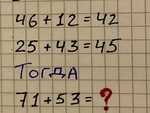 46+12=42
25+43=45
ТОГДА
71+53=?